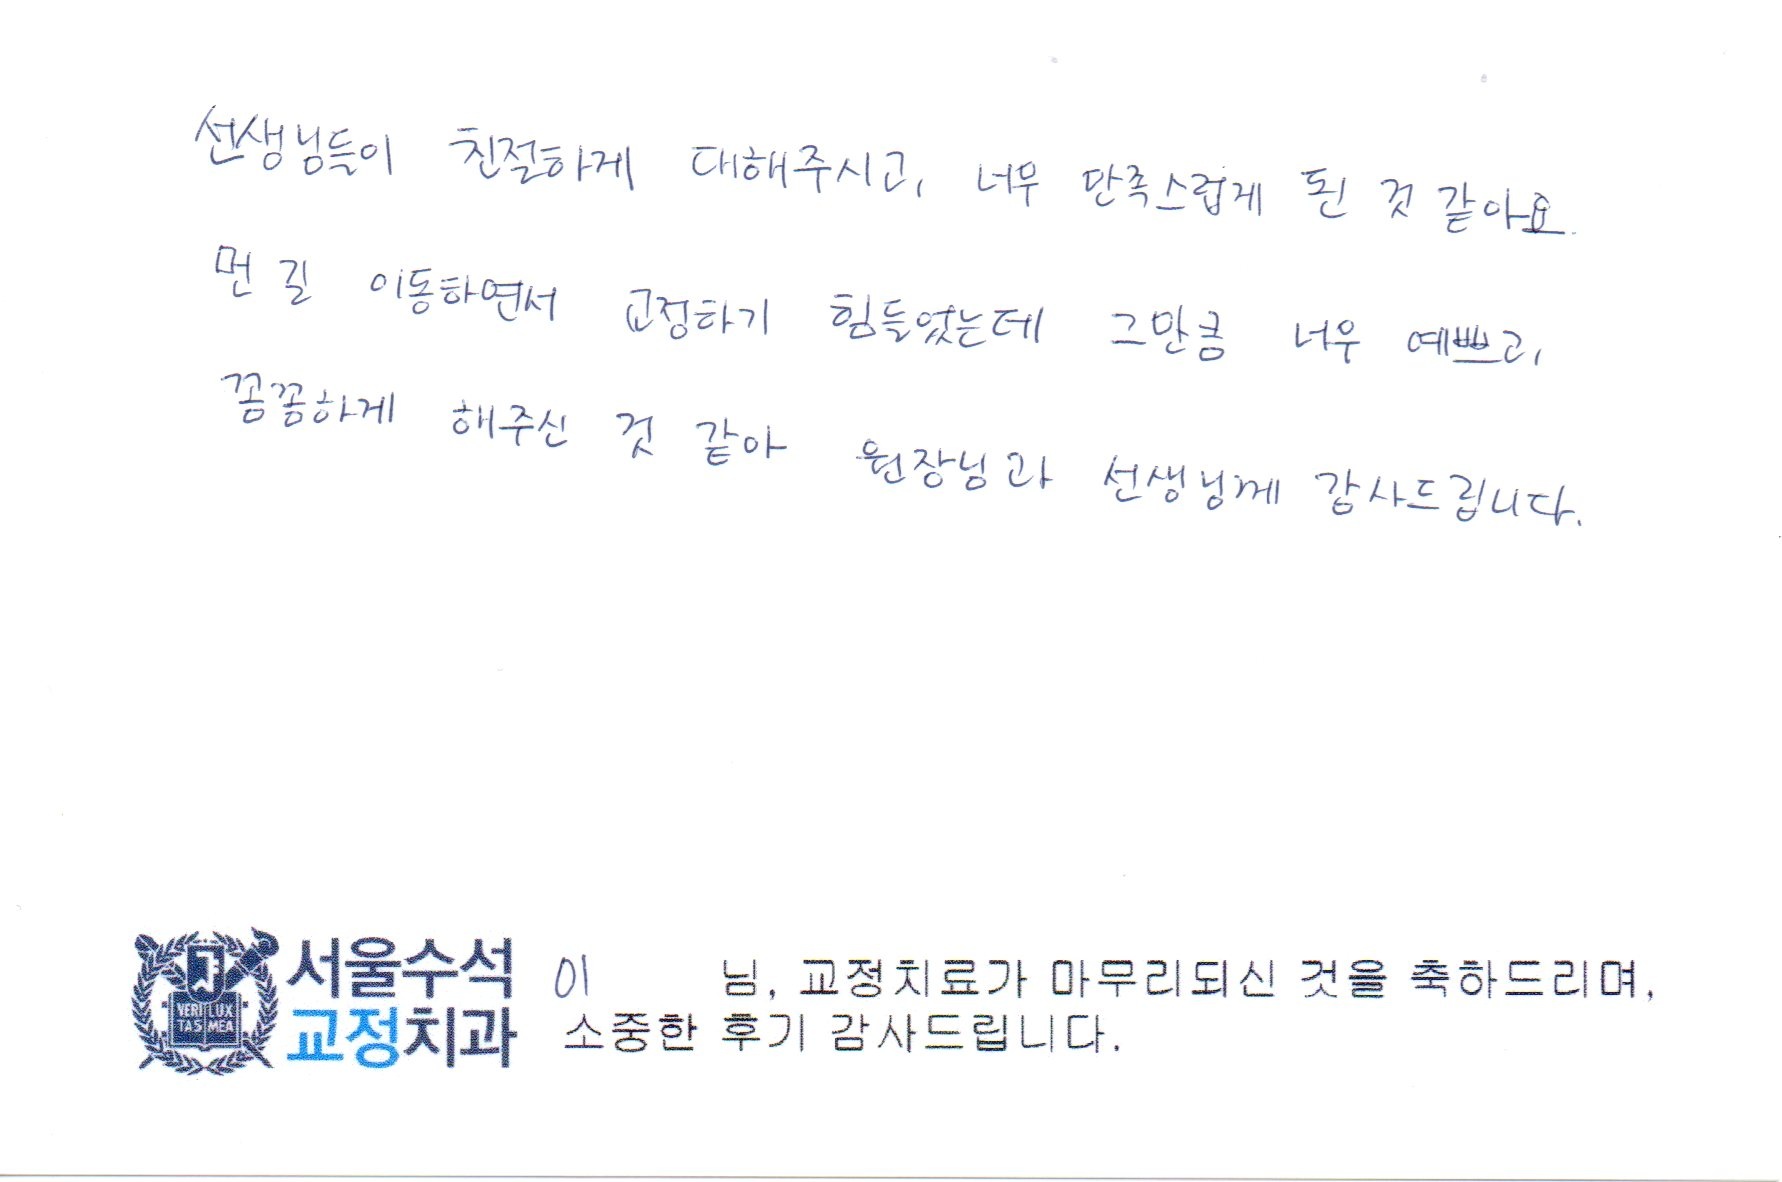 선생님들이 친절하게 대해주시고, 너무 만족스럽게 된 것 같아요.
먼 길 이동하면서 교정하기 힘들었는데 그만큼 너무 예쁘고,
꼼꼼하게 해주신 것 같아 원장님과 선생님께 감사드립니다.
VERI LUX
TAS MEA
서울수석
교정치과
이 님, 교정치료가 마무리되신 것을 축하드리며,
소중한 후기 감사드립니다.